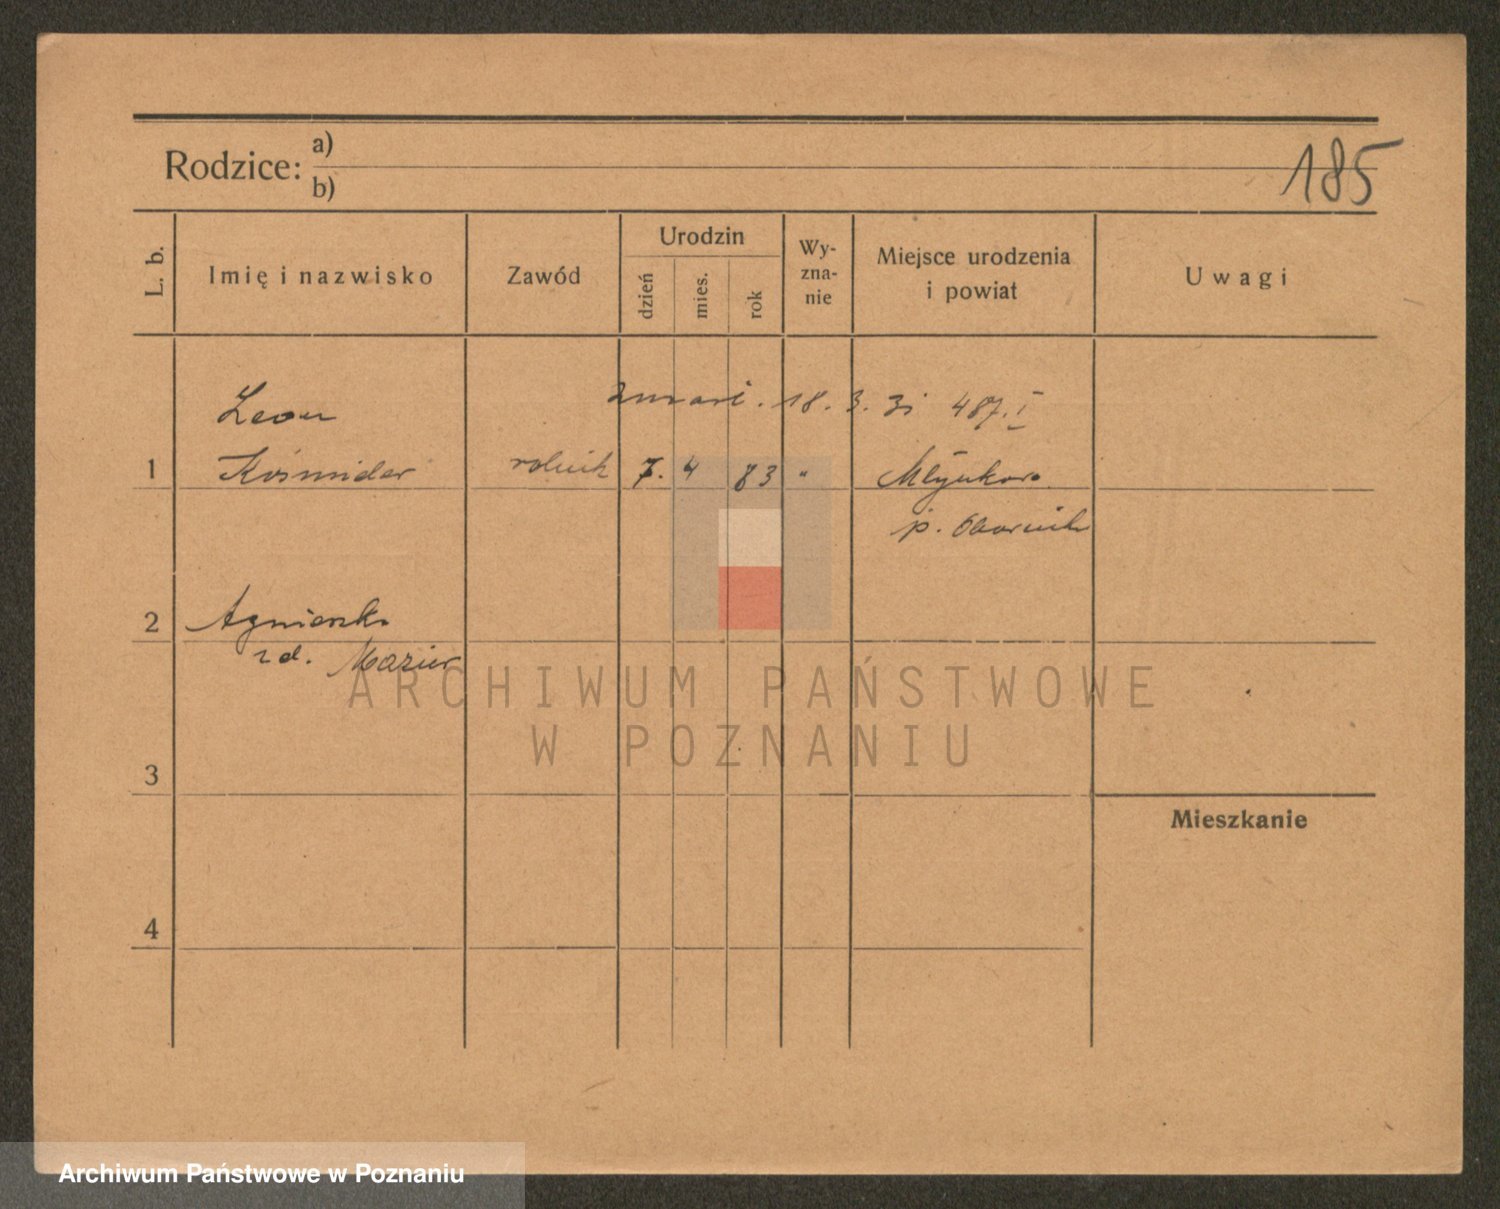 Rodzice: a)
b)
185
L. b.
Imię i nazwisko
Zawód
Urodzin
dzień
mies.
rok
Wy-
zna-
nie
Miejsce urodzenia
i powiat
Uwagi
Leon
zmarł. 18. 3. 31 487. I
1 Kośmider rolnik 7. 4 83 " Młynkowo
p. Obornik
2 Agnieszka
zd. Mazur
ARCHIWUM PAŃSTWOWE
W POZNANIU
3
Mieszkanie
4
Archiwum Państwowe w Poznaniu